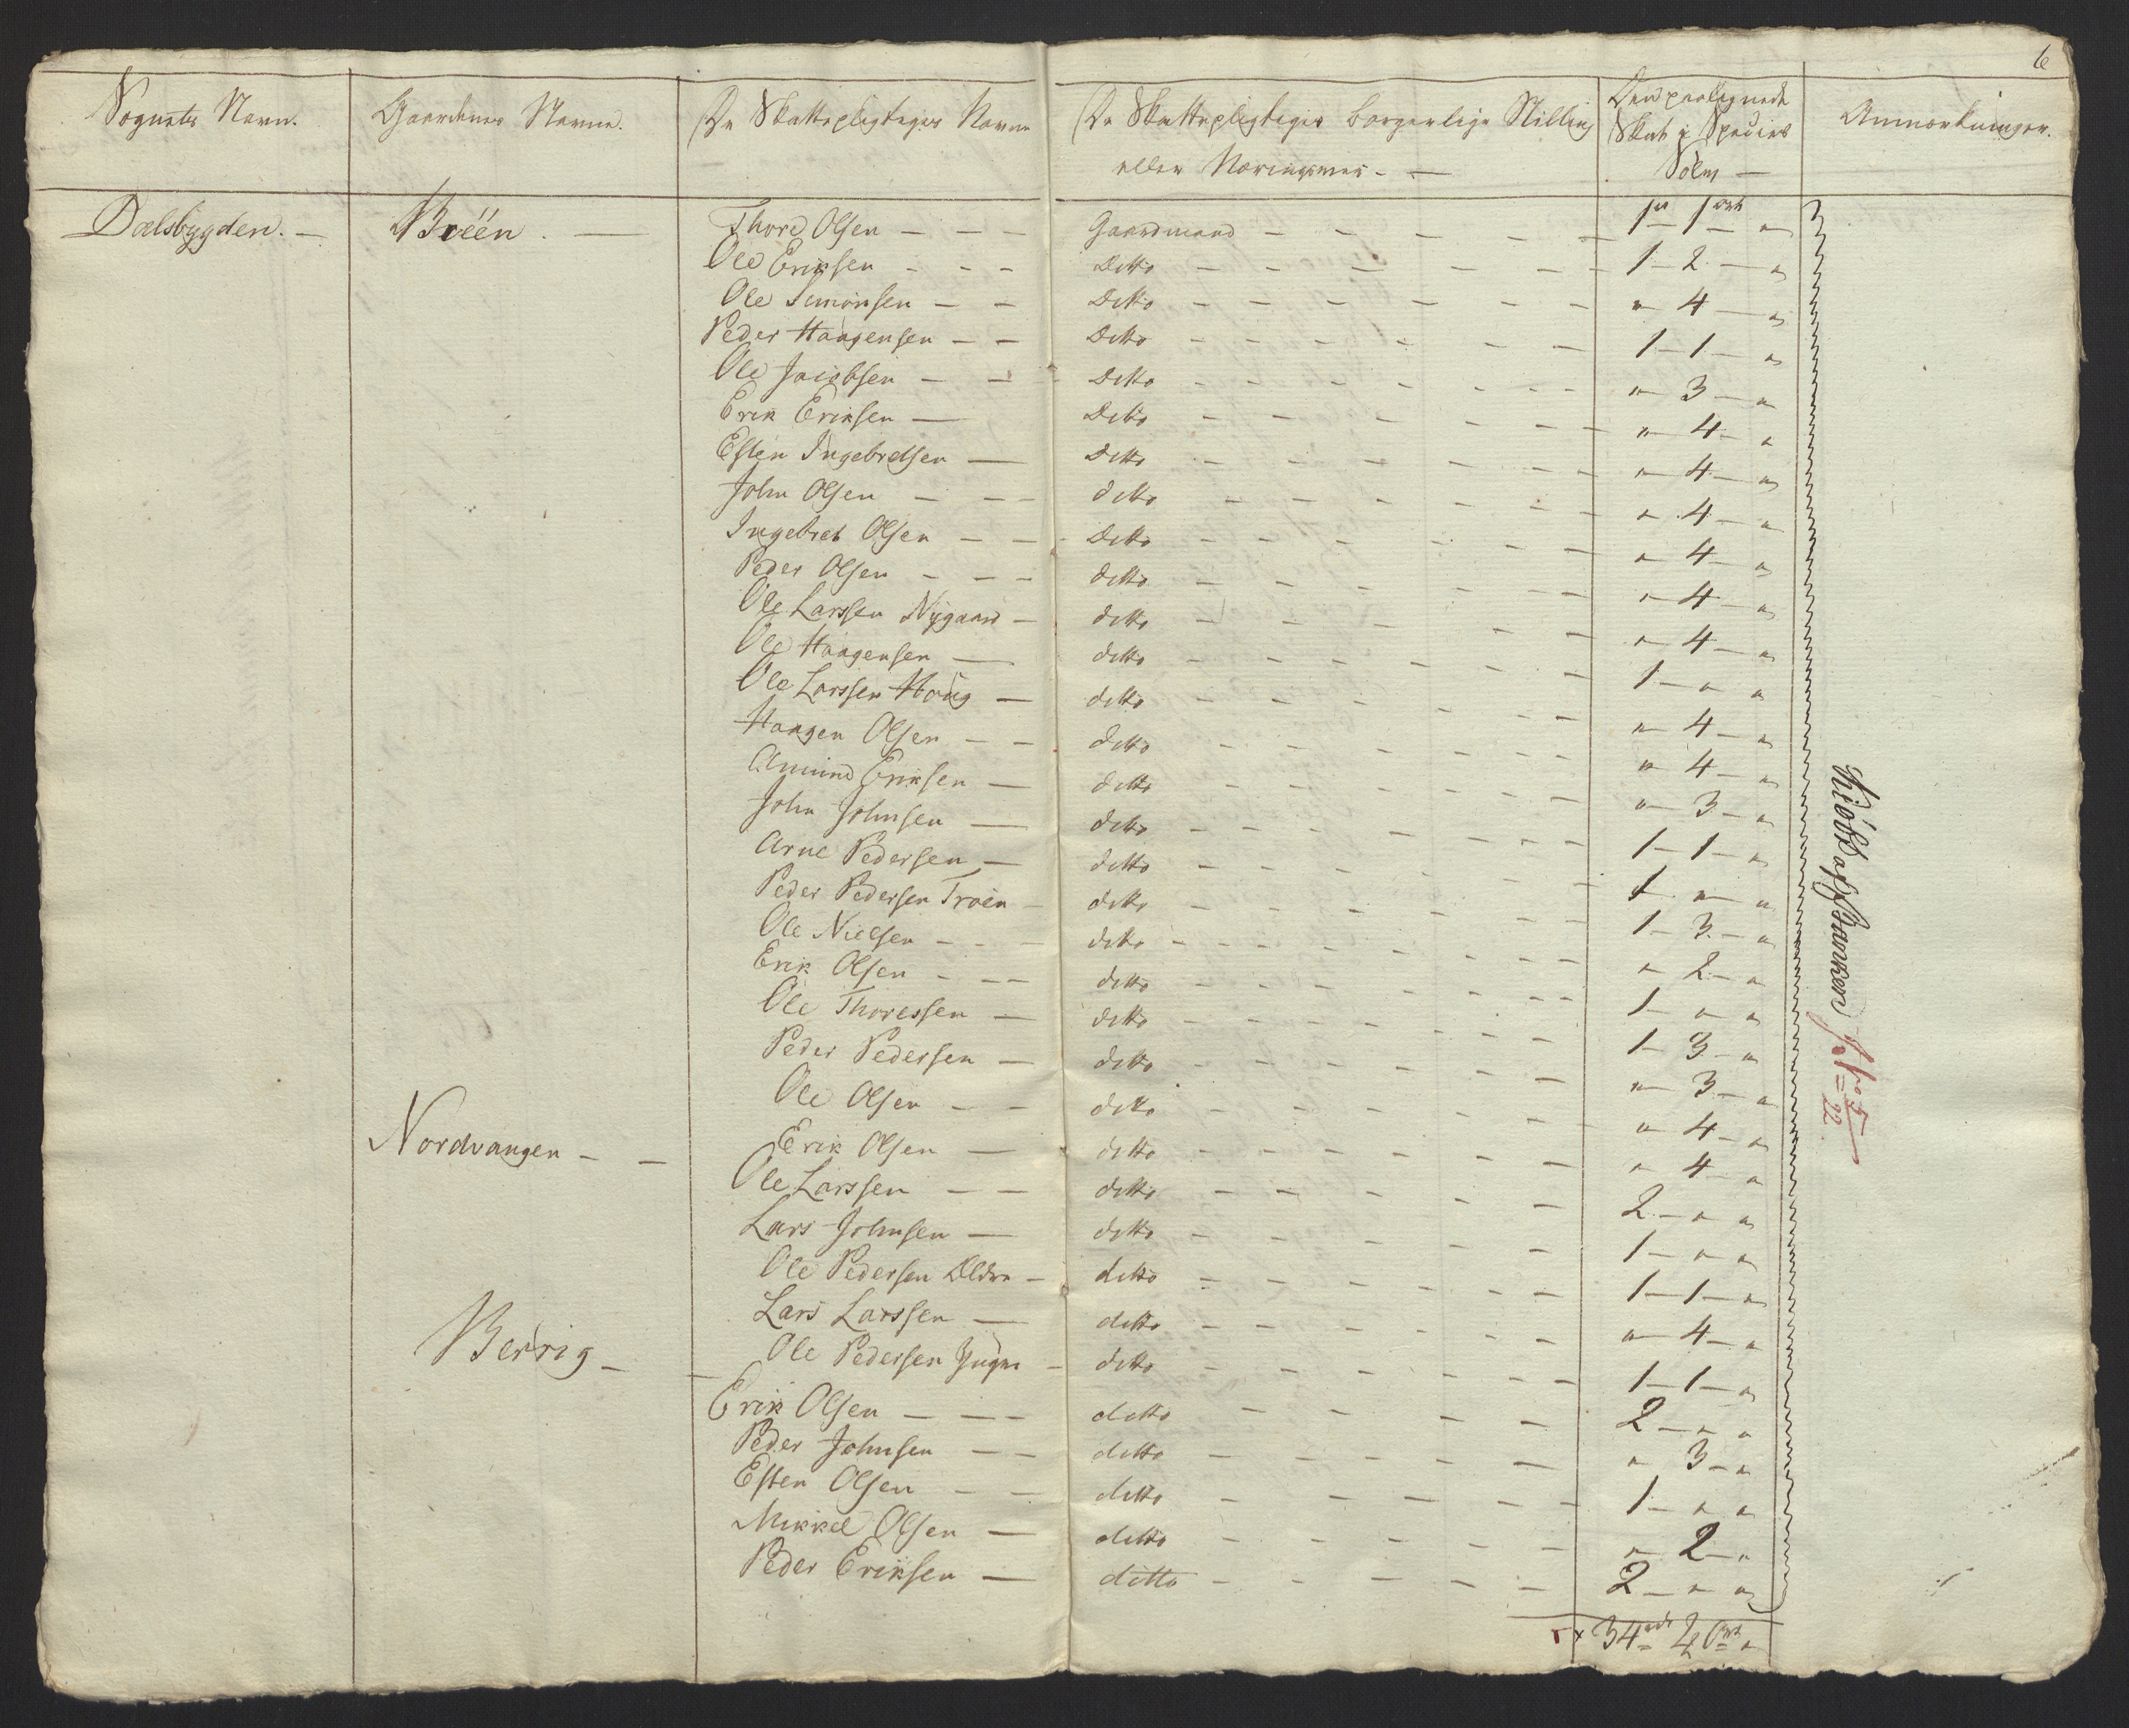 6
Sognets Navn. Gaardenes Navne. De Skattepligtiges Navne De Skattepligtiges borgerlige Stilling Den paalignede Anmærkninger.
eller Næringsvei - — Skat i Species
Sölv —
Dalsbygden. — Broen. — Thore Olsen — — — Gaardmand — — — 1 - 1 - "
Ole Eriksen - - - Ditto — — — 1 - 2 - "
Ole Simonsen — — Ditto — — — " - 4 - "
Peder Haagensen — — Ditto — — — 1 - 1 - "
Ole Jacobsen — — Ditto — — — " - 3 - "
Erik Eriksen — Ditto — — — " - 4 - "
Esten Ingebretsen — Ditto — — — " - 4 - "
John Olsen — — — ditto — — — " - 4 - "
Ingebret Olsen — — Ditto — — — " - 4 - "
Peder Olsen — — — ditto — — — " - 4 - "
Ole Larssen Nygaard — ditto — — — " - 4 - "
Ole Haagensen — ditto — — — 1 - " - "
Ole Larssen Haug — ditto — — — " - 4 - "
Haagen Olsen — — ditto — — — " - 4 - "
Amund Eriksen — ditto — — — " - 3 - "
John Johnsen — ditto — — — 1 - 1 - "
Arne Pedersen — ditto — — — 1 - " - "
Peder Pedersen Troen — ditto — — — 1 - 3 - "
Ole Nielsen — — — ditto — — — " - 2 - "
Erik Olsen — — — ditto — — — 1 - " - "
Ole Thoressen — ditto — — — 1 - 3 - "
Peder Pedersen — ditto — — — " - 3 - "
Ole Olsen — — ditto — — — " - 4 - "
Nordvangen — — Erik Olsen — ditto — — — " - 4 - "
Ole Larssen — — ditto — — — 2 - " - "
Lars Johnsen — ditto — — — 1 - " - "
Ole Pedersen Ældre — ditto — — — 1 - 1 - "
Lars Larssen — ditto — — — " - 4 - "
Berrig — — Ole Pedersen Yngre — ditto — — — 1 - 1 - "
Erik Olsen — — — ditto — — — 2 - " - "
Peder Johnsen — — ditto — — — " - 3 - "
Esten Olsen — — ditto — — — 1 - " - "
Mikkel Olsen — ditto — — — " - 2 - "
Peder Eriksen — ditto — — — 2 - " - "
34
Kiöbt af Banken
22